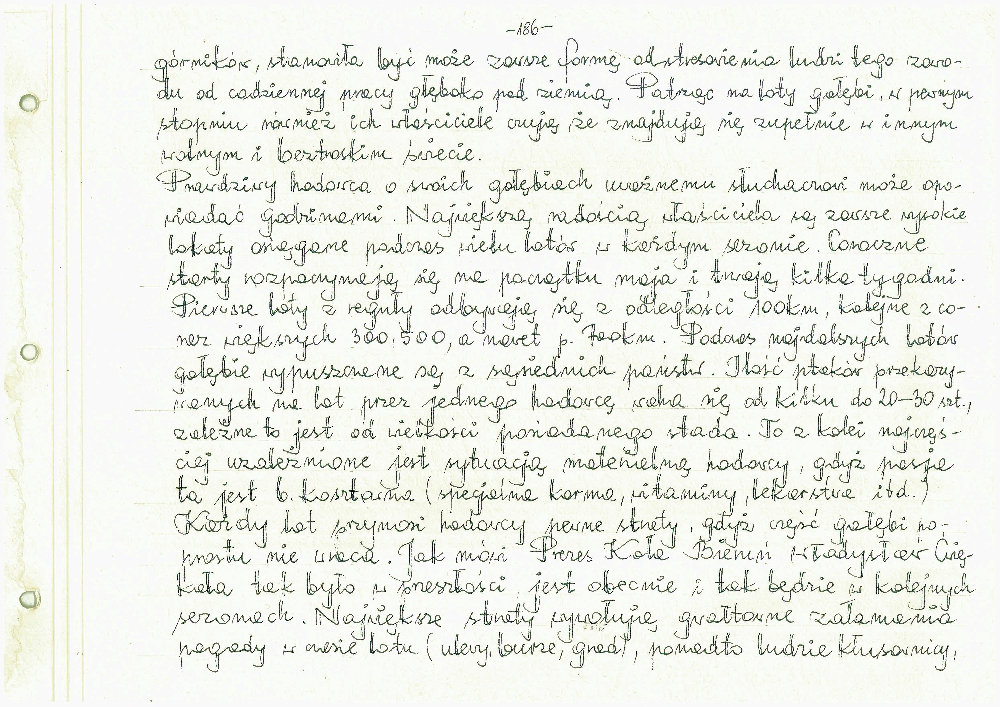 -186-
górników, stanowiła być może zawsze formę odstresowienia ludzi tego zawo-
du od codziennej pracy głęboko pod ziemią. Patrząc na loty gołębi, w pewnym
stopniu również ich właściciele czują, że znajdują się zupełnie w innym
wolnym i beztroskim świecie.
Prawdziwy hodowca o swoich gołębiach uważnemu słuchaczowi może opo-
wiadać godzinami. Największą radością właściciela są zawsze wysokie
lokaty osiągane podczas wielu lotów w każdym sezonie. Coroczne
starty rozpoczynają się na początku maja i trwają kilka tygodni.
Pierwsze loty z reguły odbywają się z odległości 100km, kolejne z co-
raz większych 300, 500, a nawet p. 700km. Podczas najdalszych lotów
gołębie wypuszczane są z sąsiednich państw. Ilość ptaków przekazy-
wanych na lot przez jednego hodowcę waha się od kilku do 20-30 szt.,
zależne to jest od wielkości posiadanego stada. To z kolei najczęś-
ciej uzależnione jest sytuacją materialną hodowcy, gdyż pasja
ta jest b. kosztowna (specjalna karma, witaminy, lekarstwa itd.)
Każdy lot przynosi hodowcy pewne straty, gdyż część gołębi po-
prostu nie wraca. Jak mówi Prezes Koła Bieruń Władysław
kała tak było w przeszłości, jest obecnie i tak będzie w kolejnych
sezonach. Największe straty wywołują gwałtowne załamania
pogody w czasie lotu (ulewy, burze, grad), ponadto ludzie kłusownicy,